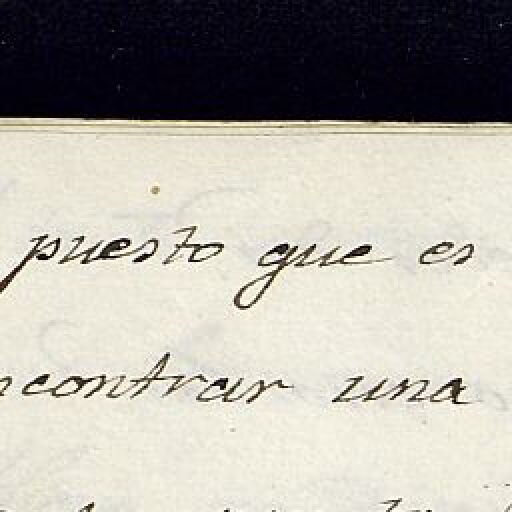 puesto que es
ncontrar una